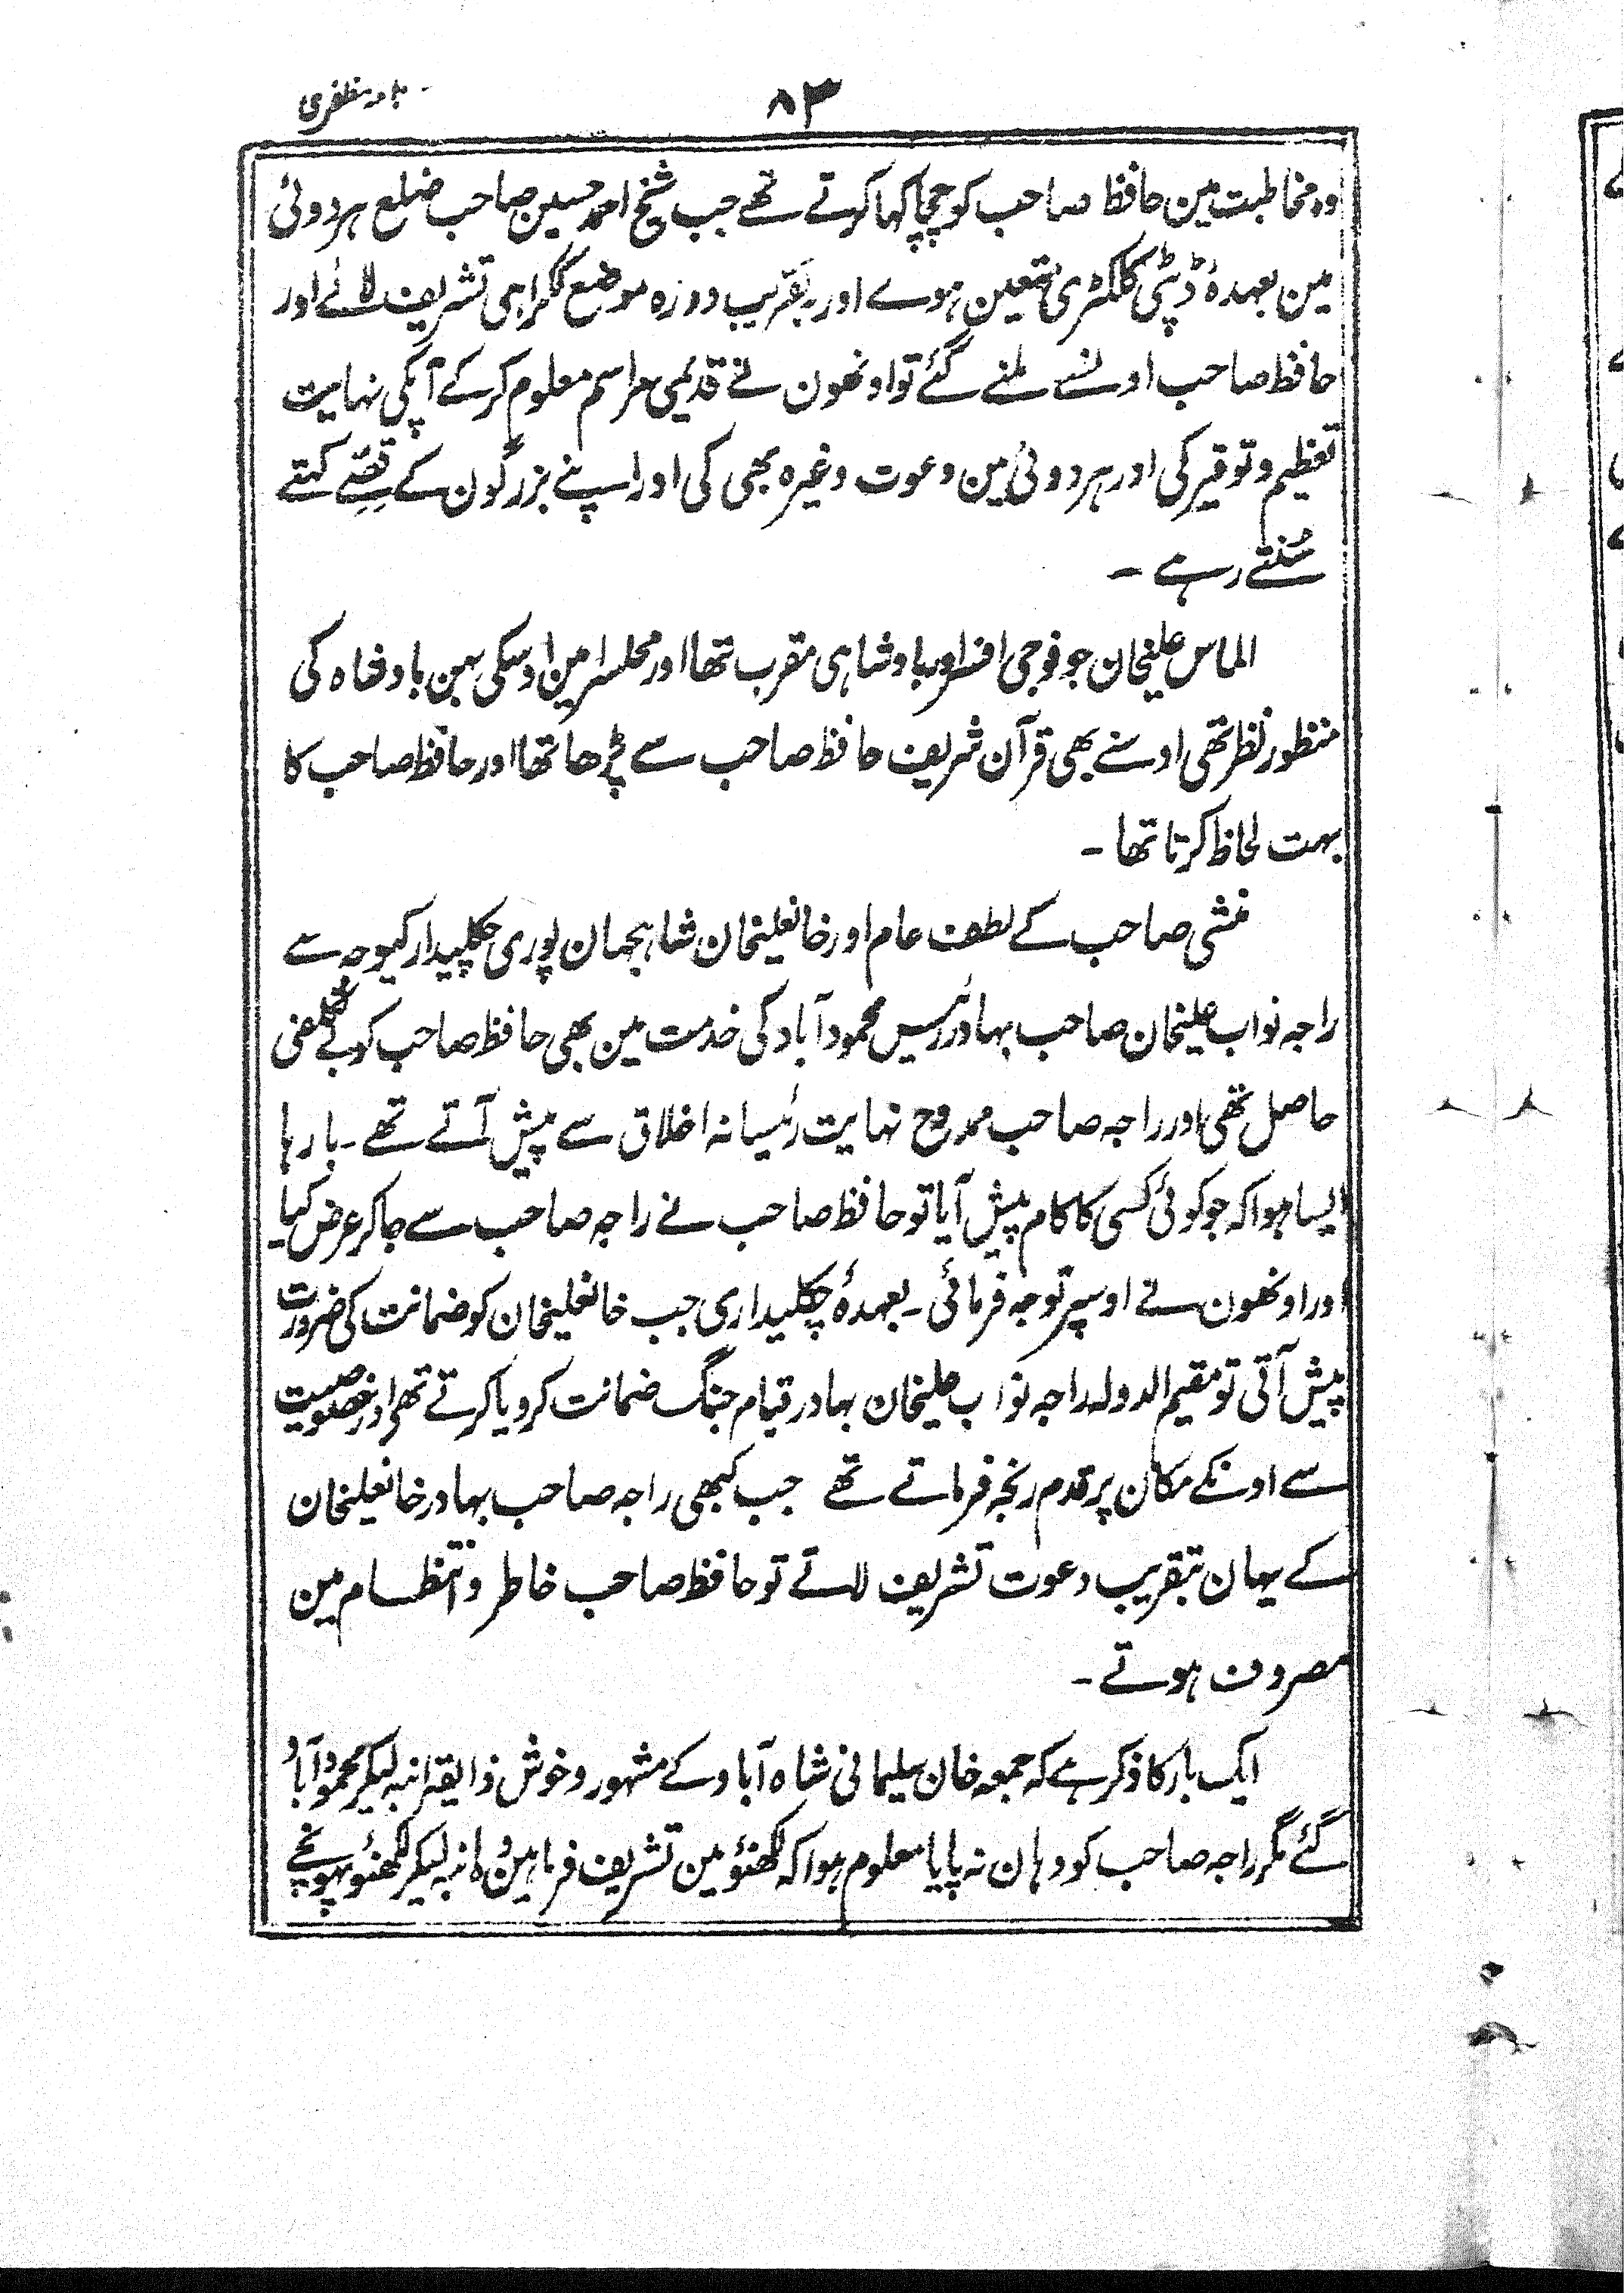 ۸۳
مظفری
وہ مخاطبت مین حافظ صاحب کو چچا کہا کرتے تھے جب شیخ احمد حسین صاحب ضلع ہردوئی
مین بعہدۂ ڈپٹی کلکٹری متعین ہوے اور بتقریب دورہ موضع ککراہی تشریف لائے اور
حافظ صاحب اونسے ملنے گئے تو اونھون نے قدیمی مراسم معلوم کرکے آپکی نہایت
تعظیم و توقیر کی اور ہردوئی مین دعوت وغیرہ بھی کی اور اپنے بزرگون کے قصّے کہتے
سُنتے رہے ۔
الماس علیخان جو فوجی افسر اور بادشاہی مقرب تھا اور محلسرا مین اوسکی بہن بادشاہ کی
منظور نظر تھی اوسنے بھی قرآن شریف حافظ صاحب سے پڑھا تھا اور حافظ صاحب کا
بہت لحاظ کرتا تھا ۔
منشی صاحب کے لطف عام اور خانعلیخان شاہجہان پوری چکلیدار کیوجہ سے
راجہ نواب علیخان صاحب بہادر رئیس محمودآباد کی خدمت مین بھی حافظ صاحب کو بے تکلفی
حاصل تھی اور راجہ صاحب ممدوح نہایت رئیسانہ اخلاق سے پیش آتے تھے ۔ بارہا
ایسا ہوا کہ جو کوئی کسی کا کام پیش آیا تو حافظ صاحب نے راجہ صاحب سے جاکر عرض کیا
اور اونھون نے اوسپر توجہ فرمائی ۔ بعہدۂ چکلیداری جب خانعلیخان کو ضمانت کی ضرورت
پیش آتی تو مقیم الدولہ راجہ نواب علیخان بہادر قیام جنگ ضمانت کردیا کرتے تھے اور خصوصیت
سے اونکے مکان پر قدم رنجہ فرماتے تھے جب کبھی راجہ صاحب بہادر خانعلیخان
کے یہان بتقریب دعوت تشریف لاتے تو حافظ صاحب خاطر و انتظام مین
مصروف ہوتے ۔
ایک بار کا ذکر ہے کہ جمعہ خان سلیمانی شاہ آباد کے مشہور و خوش ذایقہ انبہ لیکر محمودآباد
گئے مگر راجہ صاحب کو وہان نہ پایا معلوم ہوا کہ لکھنؤ مین تشریف فرما ہین وہ انبہ لیکر لکھنؤ پہونچے